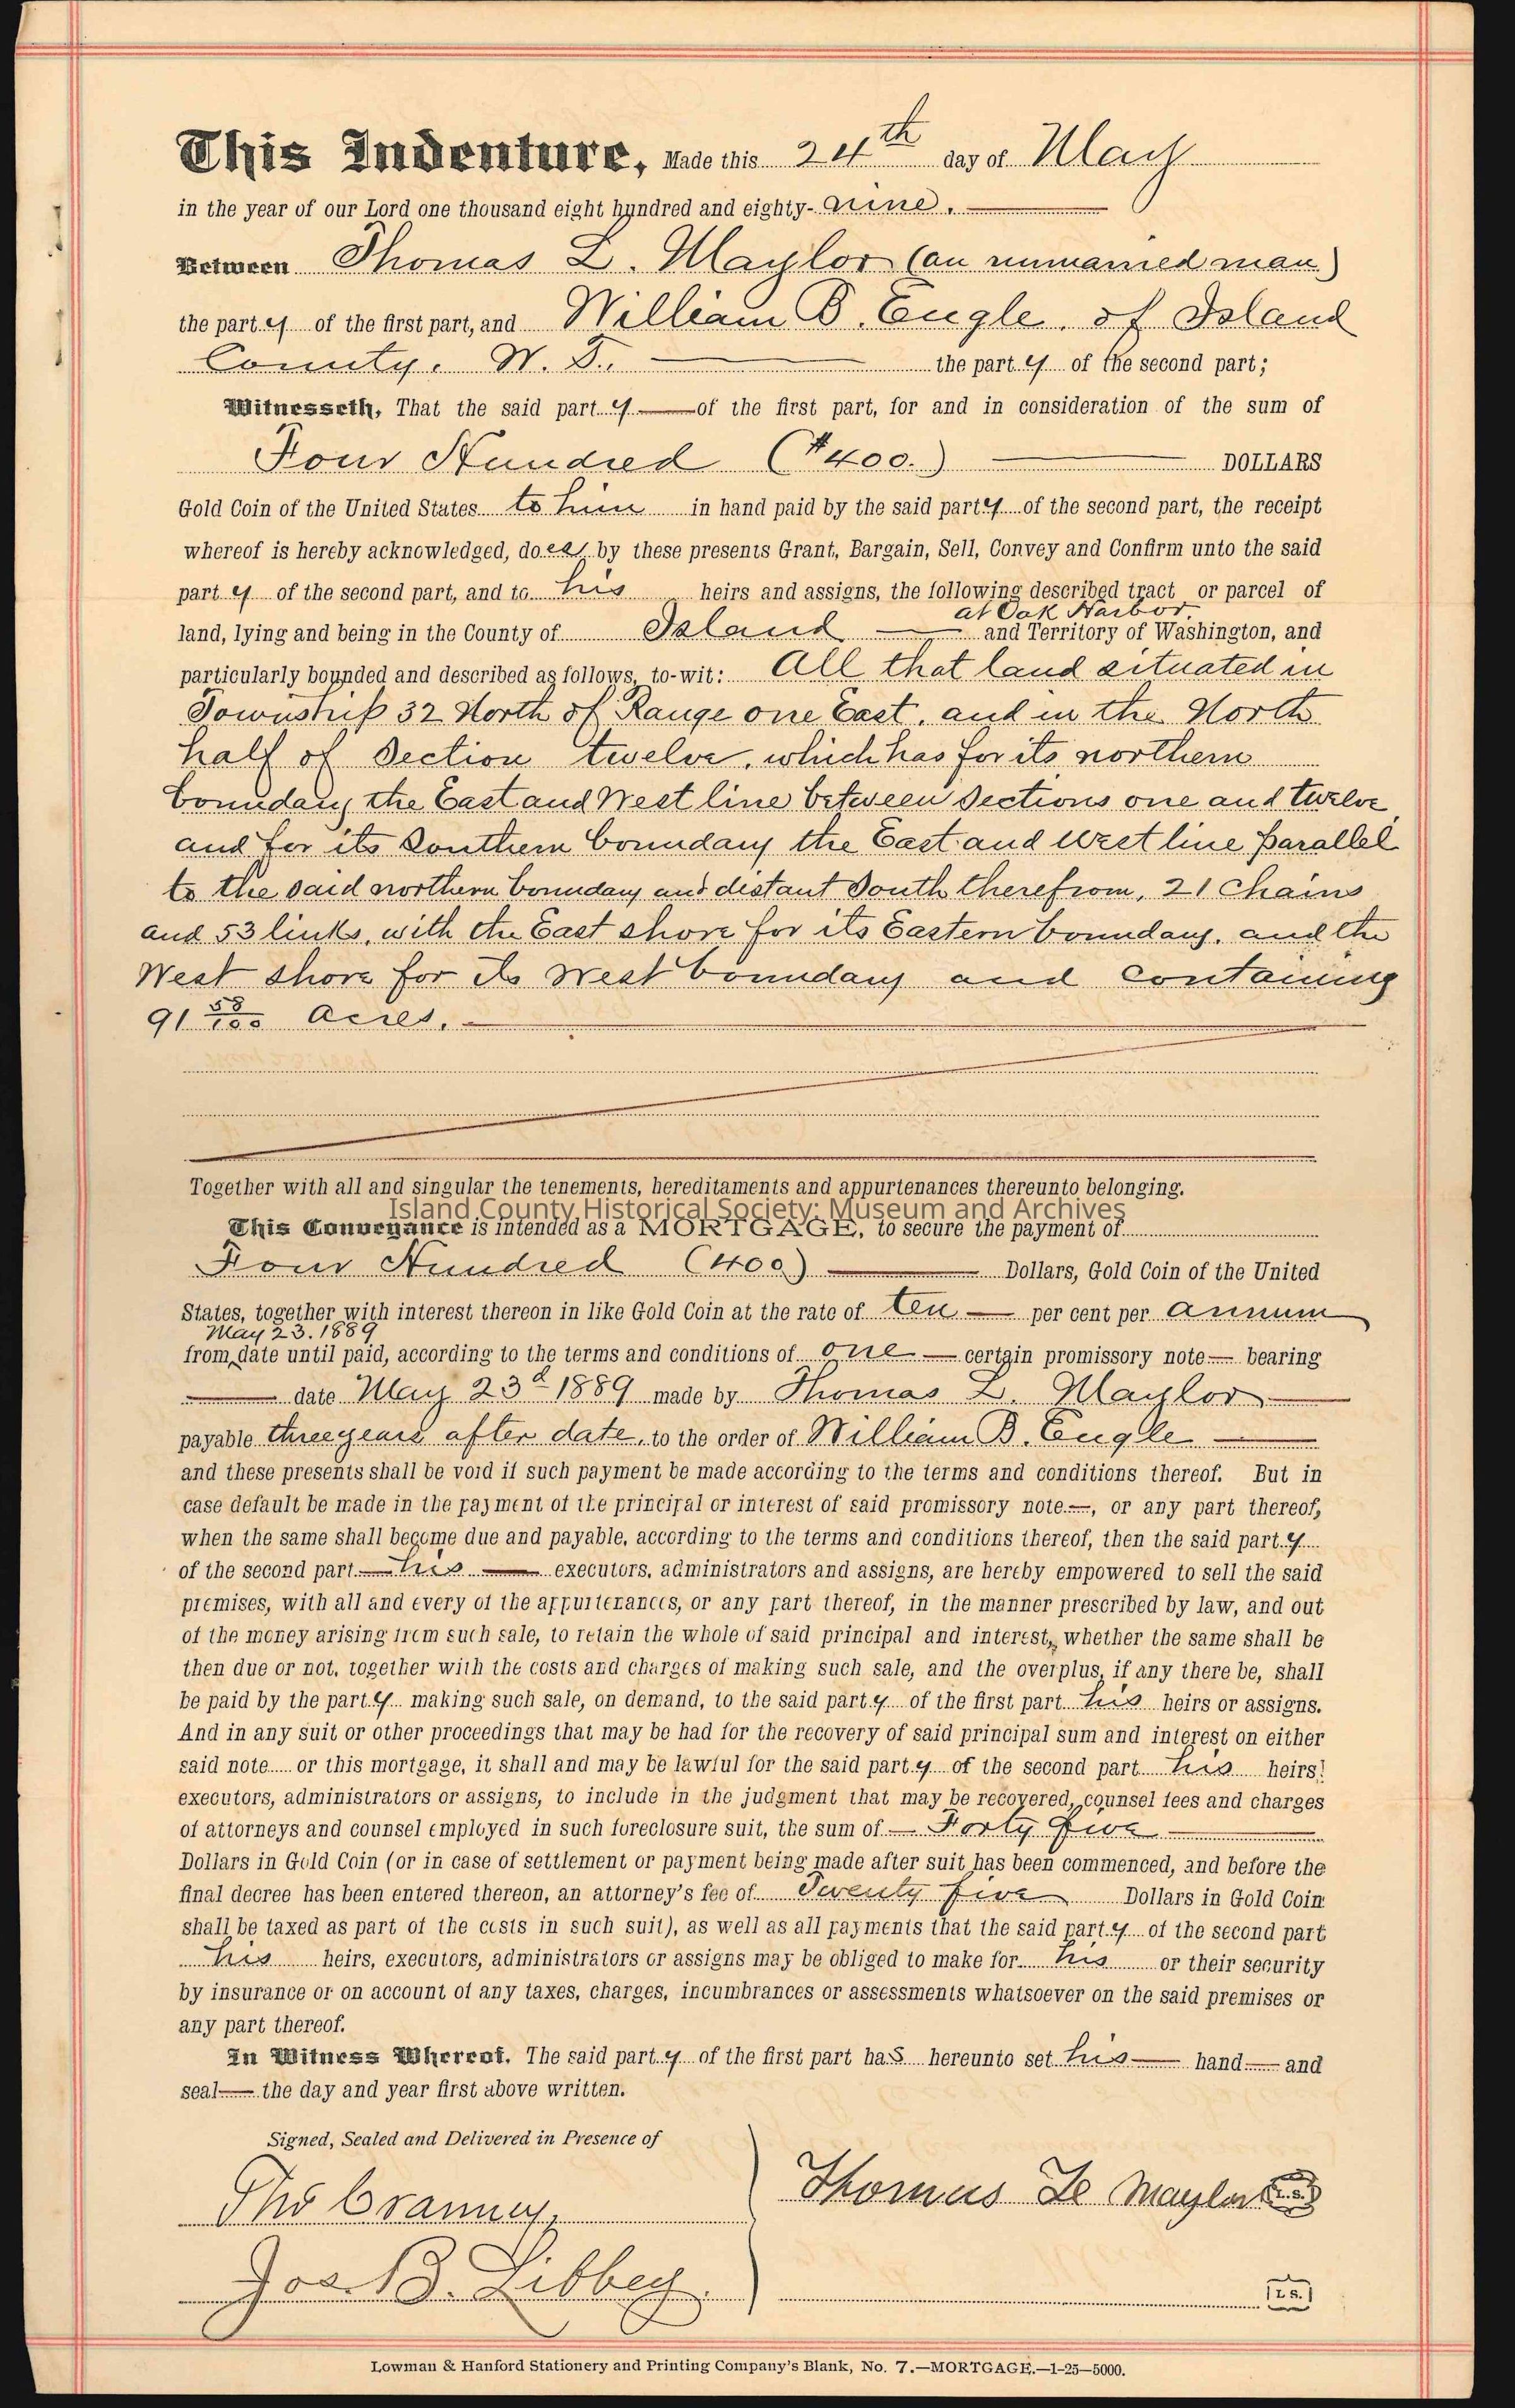 This Indenture, Made this 24th day of May
in the year of our Lord one thousand eight hundred and eighty-nine.
Between Thomas L. Maylor (an unmarried man)
the party of the first part, and William B. Engle, of Island
County, W. T., the party of the second part;
Witnesseth, That the said party of the first part, for and in consideration of the sum of
Four Hundred ($400.) DOLLARS
Gold Coin of the United States to him in hand paid by the said party of the second part, the receipt
whereof is hereby acknowledged, does by these presents Grant, Bargain, Sell, Convey and Confirm unto the said
party of the second part, and to his heirs and assigns, the following described tract or parcel of
at Oak Harbor,
land, lying and being in the County of Island and Territory of Washington, and
particularly bounded and described as follows, to-wit: All that land situated in
Township 32 North of Range one East, and in the North
half of Section twelve, which has for its northern
boundary the East and West line between Sections one and twelve,
and for its Southern boundary the East and West line parallel
to the said northern boundary and distant South therefrom, 21 Chains
and 53 links, with the East shore for its Eastern boundary, and the
West shore for its West boundary and containing
91 58/100 acres.
Together with all and singular the tenements, hereditaments and appurtenances thereunto belonging.
Island County Historical Society: Museum and Archives
This Conveyance is intended as a MORTGAGE, to secure the payment of
Four Hundred (400) Dollars, Gold Coin of the United
States, together with interest thereon in like Gold Coin at the rate of ten per cent per annum
May 23. 1889
from date until paid, according to the terms and conditions of one certain promissory note bearing
date May 23d 1889 made by Thomas L. Maylor
payable three years after date, to the order of William B. Engle
and these presents shall be void if such payment be made according to the terms and conditions thereof. But in
case default be made in the payment of the principal or interest of said promissory note, or any part thereof,
when the same shall become due and payable, according to the terms and conditions thereof, then the said party
of the second part his executors, administrators and assigns, are hereby empowered to sell the said
premises, with all and every of the appurtenances, or any part thereof, in the manner prescribed by law, and out
of the money arising from such sale, to retain the whole of said principal and interest, whether the same shall be
then due or not, together with the costs and charges of making such sale, and the overplus, if any there be, shall
be paid by the party making such sale, on demand, to the said party of the first part his heirs or assigns.
And in any suit or other proceedings that may be had for the recovery of said principal sum and interest on either
said note or this mortgage, it shall and may be lawful for the said party of the second part his heirs,
executors, administrators or assigns, to include in the judgment that may be recovered, counsel fees and charges
of attorneys and counsel employed in such foreclosure suit, the sum of Forty five
Dollars in Gold Coin (or in case of settlement or payment being made after suit has been commenced, and before the
final decree has been entered thereon, an attorney's fee of Twenty five Dollars in Gold Coin
shall be taxed as part of the costs in such suit), as well as all payments that the said party of the second part
his heirs, executors, administrators or assigns may be obliged to make for his or their security
by insurance or on account of any taxes, charges, incumbrances or assessments whatsoever on the said premises or
any part thereof.
In Witness Whereof, The said party of the first part has hereunto set his hand and
seal the day and year first above written.
Signed, Sealed and Delivered in Presence of
Thos Cranney, Thomas Le Maylor L.S.
Jos. B. Libbey. L S.
Lowman & Hanford Stationery and Printing Company's Blank, No. 7.—MORTGAGE.—1-25—5000.